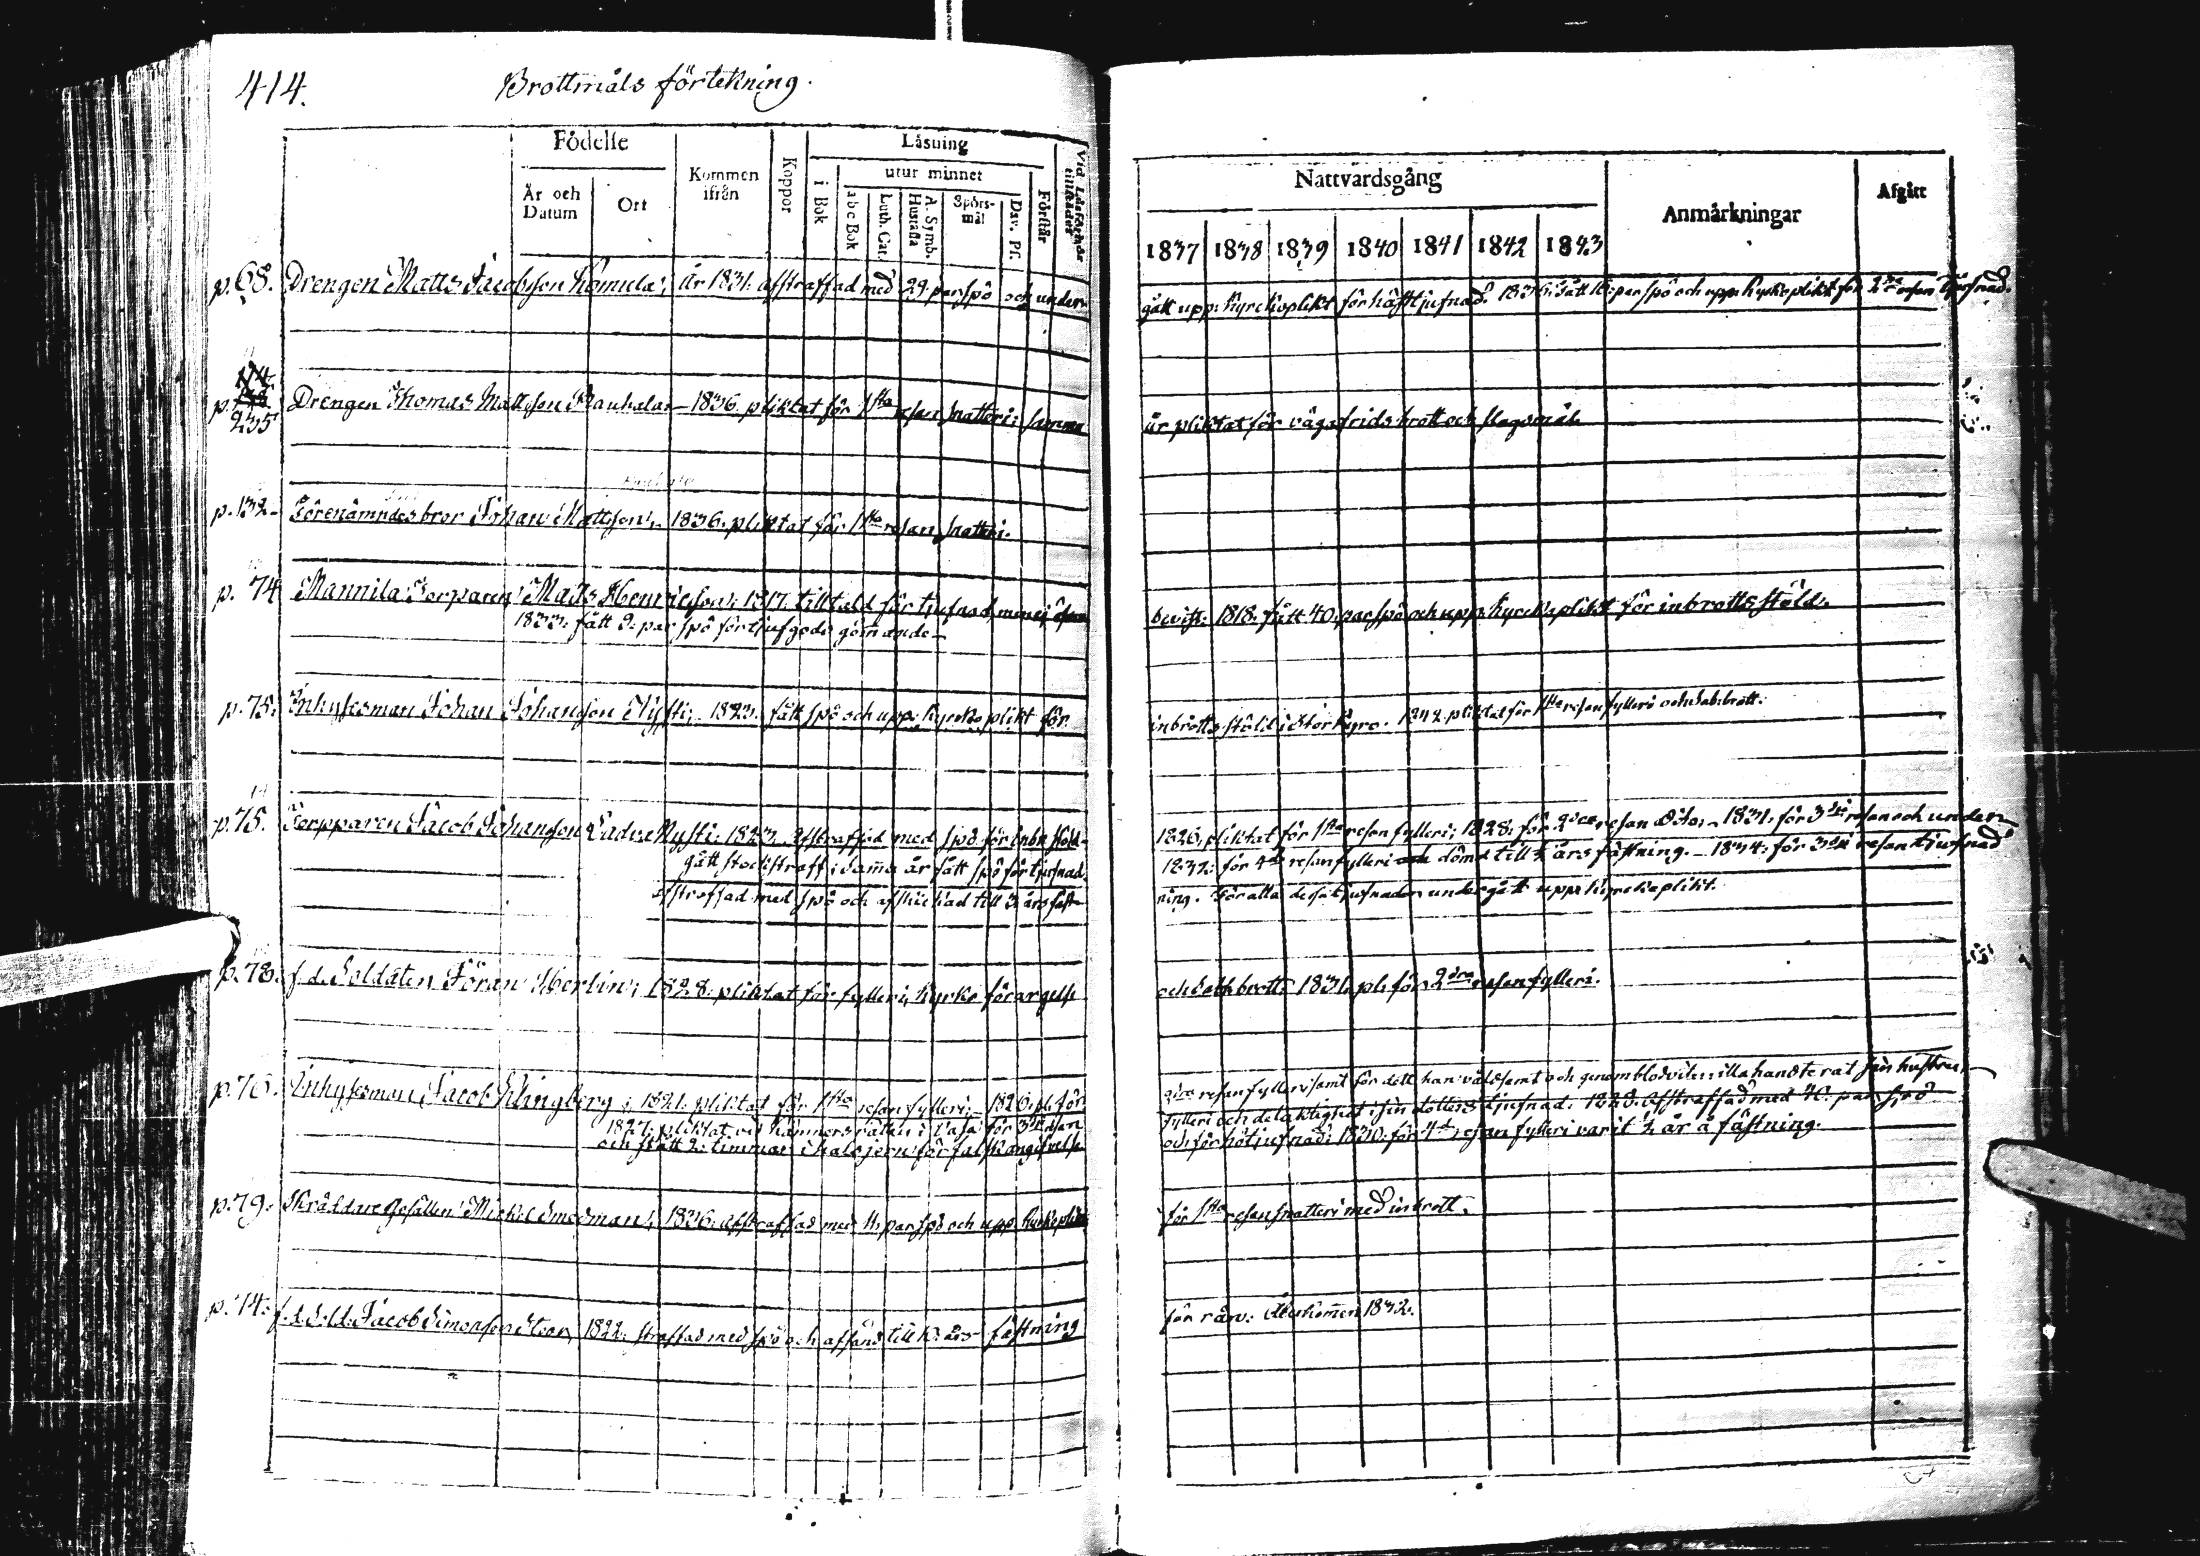 414.
Brottmåls förtekning.
Födelse
År och Datum
Ort
Kommen ifrån
Koppor
Läsning
i Bok
utur minnet
abc Bok
Luth. Cat.
A. Symb. Hustafla
Spörs-mål
Dav. Ps.
Förstår
Vid Läsförhör tillstädes
Nattvardsgång
1837 1838 1839 1840 1841 1842 1843
Anmärkningar
Afgått
p. 68. Drengen Matts Jacobsson Komula; år 1831. afstraffad med 29. par spö och under-
gått upp: kyrckoplikt för häst tjufnad. 1836. fått par spö och upp: kyrkoplikt för 2dra resan tjufnad.
p. 235 Drengen Thomas Mattsson Rauhala – 1836. pliktat för 1sta resan snatteri; samma
år pliktat för vägafrids brott och slagsmål.
p. 132 – Förenämndes bror Johan Mattsson, – 1836. pliktat för 1sta resan snatteri.
p. 74 Mannila Torparen Matts Henricsson; 1817. tilltald för tjufnad, men ej
bevist: 1818. fått 40. par spö och upp: kyrckoplikt för inbrotts stöld.
1833. fått 9. par spö för tjufgods gömande –
p. 75. Inhysesman Johan Johansson Nysti, – 1823. fått spö och upp: kyrcko plikt för
inbrotts stöld i Storkyro. 1842. pliktat för 1sta resan fylleri och sab:brott.
p. 75. Torpparen Jacob Johansson Nysti: 1823. afstraffad med spö för inbr. stöld –
1826. pliktat för 1sta resan fylleri; 1828. för 2dra resan dito; – 1831. för 3dje resan och under-
gått stockstraff; samma år fått spö för tjufnad,
för 4de resan fylleri dömd till ½ års fästning. – 1834. för 3dje resan tjufnad
afstraffad med spö och afskickad till 3. års fäst-
ning. För alla dessa tjufnader undergått upp: kyrckoplikt.
p. 78. f. d. Soldaten Jöran Herlin; 1828. pliktat för fylleri, kyrko förargelse
och sabb.brott. 1831. pl. för 2dra resan fylleri.
p. 76. Inhysesman Jacob Klingberg; 1821. pliktat för 1sta resan fylleri; – 1826. pl. för
2dra resan fylleri samt för dett han våldsamt och genom blodviten illa handterat sin hustru, –
1827. pliktat vid Kämners rätten i Vasa för 3dje resan
fylleri och delaktighet i sin dotters tjufnad. 1828. afstraffad med par spö
och stått 2. timmar i halsjern för falsk angifvelse
och för nöt tjufnad; 1830. för 4de resan fylleri varit ½ år å fästning.
p. 79. Skräddare Gesällen Michel Smedman; 1836. afstraffad med par spö och upp: kyrkoplikt
för 1sta resan snatteri med inbrott.
p. 74. f. d. Sold. Jacob Simonsson Stor, 1822. straffad med spö och afsänd till års fästning
för rån. återkommen 1832.